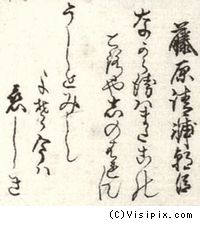 藤原清輔朝臣
なからへはまたこの
ころやしのはれん
うしとみし
よそ今は
恋しき
(C)Visipix.com